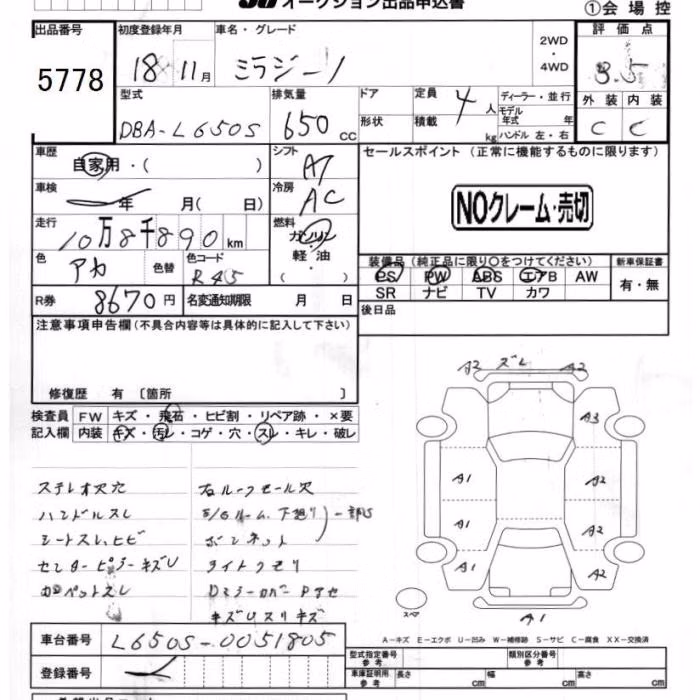 オークション出品申込書
①会場控
出品番号
5778
初度登録年月
18 11月
車名・グレード
ミラジーノ
2WD
・
4WD
評価点
3.5
外装 内装
C C
型式
DBA-L650S
排気量
650 cc
ドア
形状
定員 4人
積載 kg
ディーラー・並行
モデル年式 年
ハンドル 左・右
車歴
自家用・( )
シフト
AT
車検
年 月( 日)
冷房
AC
走行
10万8千890km
燃料
ガソリン
軽・油
( )
色
アカ
色替
色コード
R45
R券 8670円
名変通知期限 月 日
セールスポイント (正常に機能するものに限ります)
NOクレーム・売切
装備品(純正品に限り○をつけてください)
PS PW ABS エアB AW
SR ナビ TV カワ
新車保証書
有・無
後日品
注意事項申告欄(不具合内容等は具体的に記入して下さい)
修復歴 有 〔箇所 〕
検査員
記入欄
FW キズ・飛石・ヒビ割・リペア跡・×要
内装 キズ・汚レ・コゲ・穴・スレ・キレ・破レ
ステレオ欠穴
ハンドルスレ
シートスレ、ヒビ
センターピラーキズU
カーペットスレ
右ルーフモール欠
下廻リ 一部S
ボンネット
ライトクモリ
キズUスリキズ
A2 ズレ A2
A3
A1
A2
A1
A2
A1
A2
A1
スペア
A-キズ E-エクボ U-凹み W-補修跡 S-サビ C-腐食 XX-交換済
車台番号
L650S-0051805
登録番号
型式指定番号
参考
類別区分番号
参考
車庫証明用
参考
長さ cm
幅 cm
高さ cm